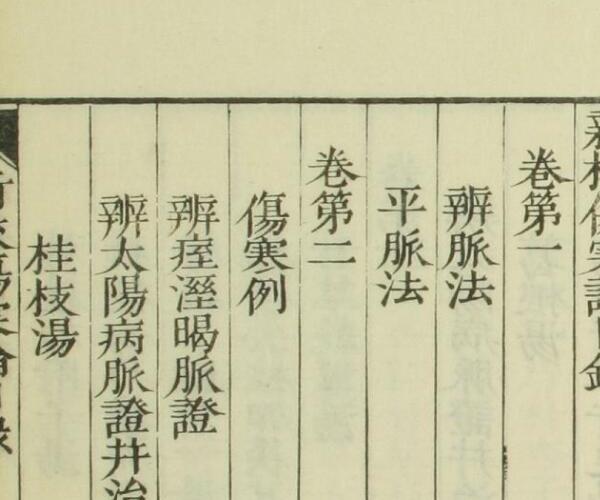 新校傷寒論目錄
卷第一
辨脈法
平脈法
卷第二
傷寒例
辨痓溼暍脈證
辨太陽病脈證幷治
桂枝湯